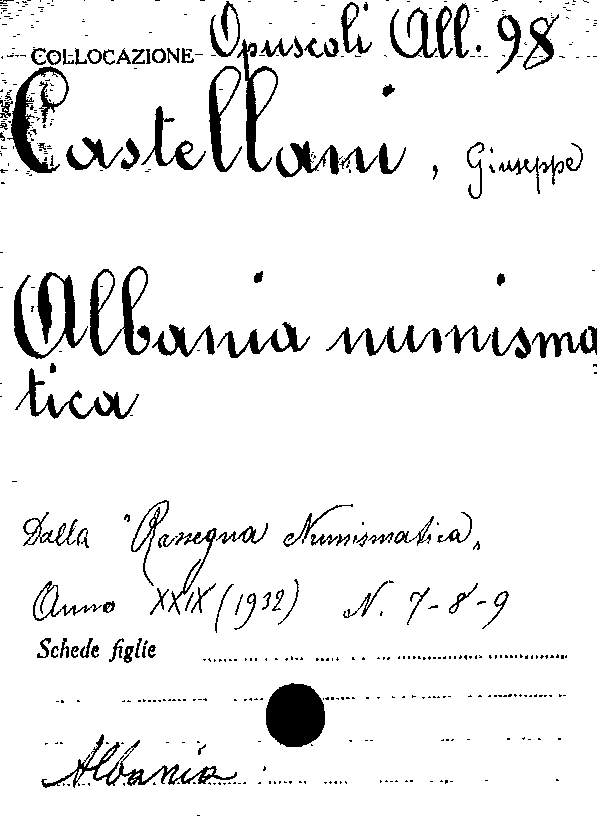 COLLOCAZIONE Opuscoli All. 98
Castellani, Giuseppe
Albania numisma
tica
Dalla "Rassegna Numismatica„
Anno XXIX (1932) N. 7-8-9
Schede figlie
Albania